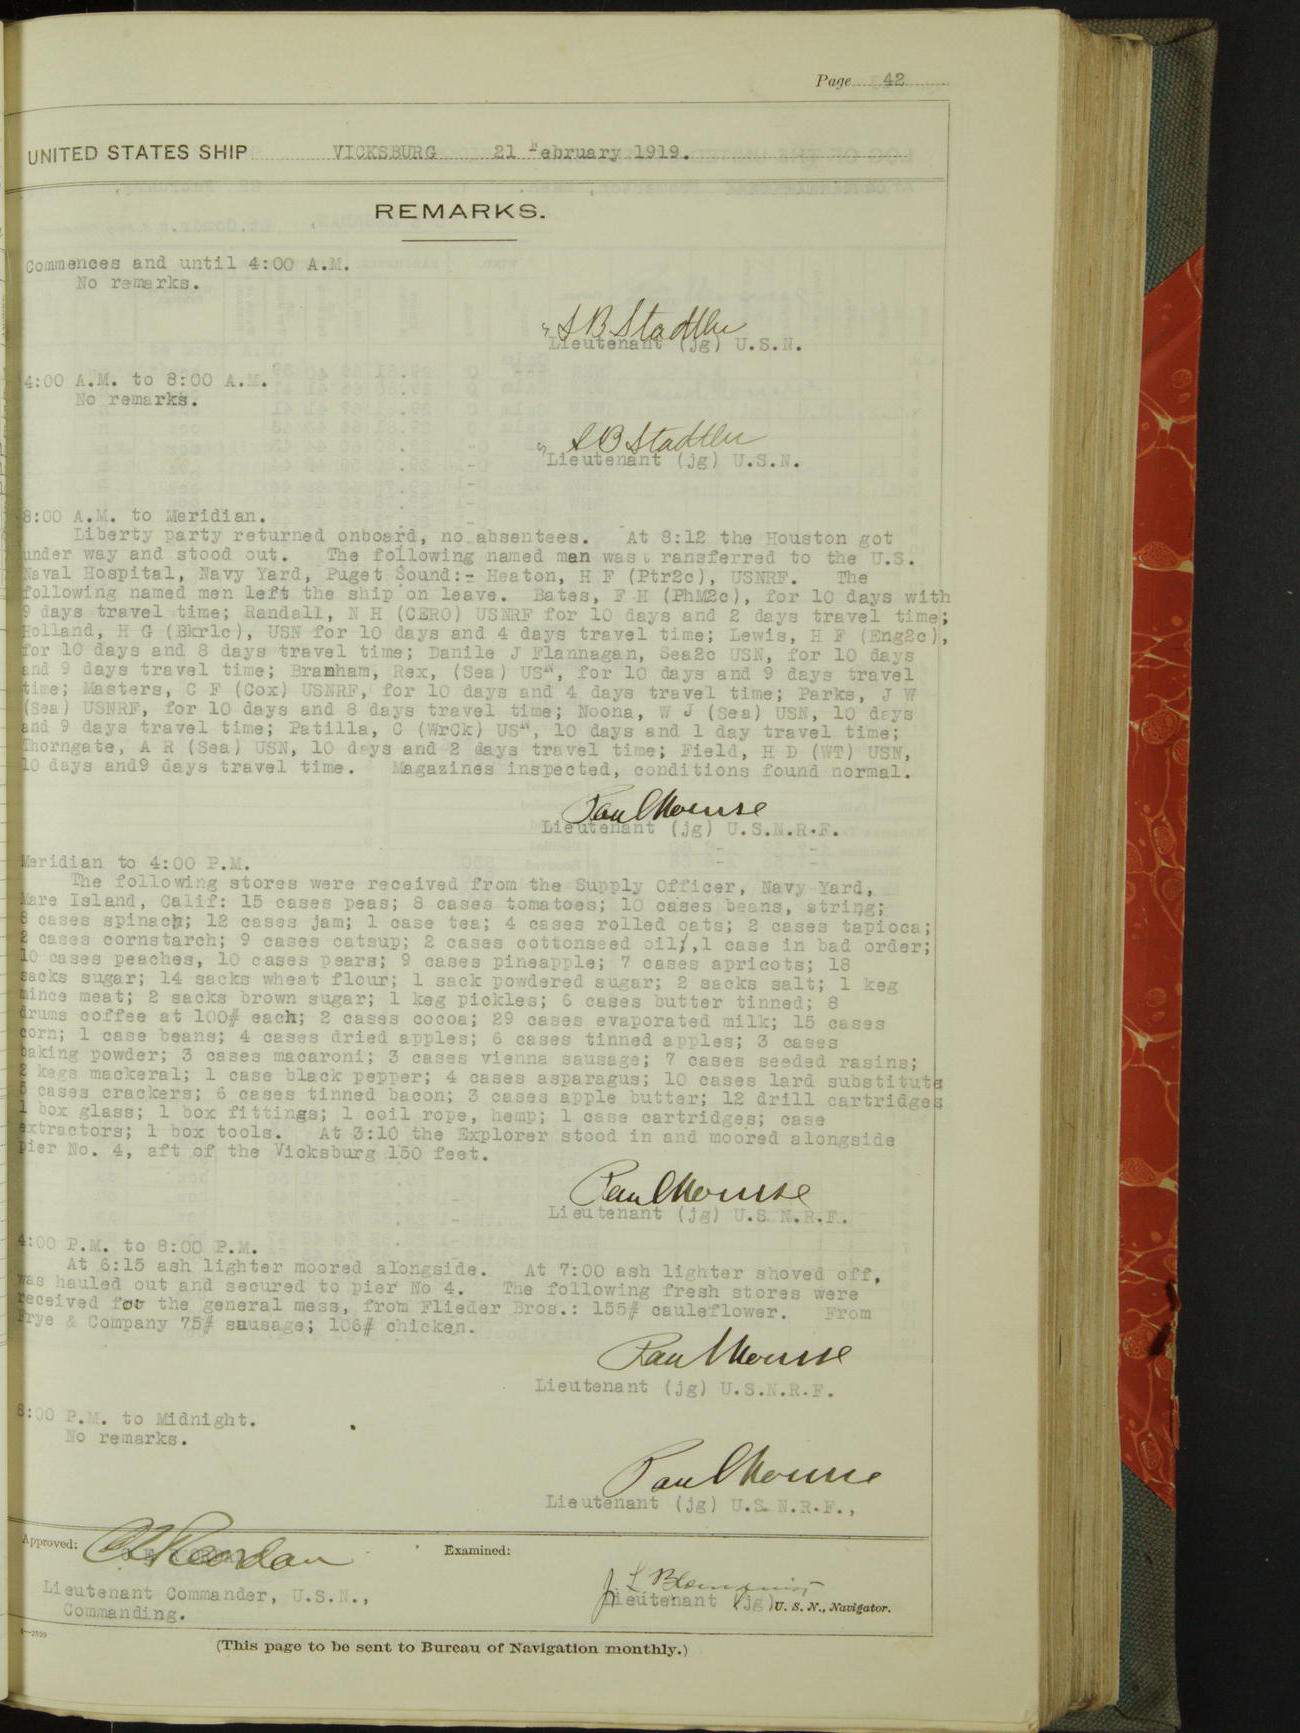 Page 42
UNITED STATES SHIP VICKSBURG 21 February 1919.
REMARKS.
Commences and until 4:00 A.M.
No remarks.
S B Stadtler
Lieutenant (jg) U.S.N.
4:00 A.M. to 8:00 A.M.
No remarks.
S B Stadtler
Lieutenant (jg) U.S.N.
8:00 A.M. to Meridian.
Liberty party returned onboard, no absentees. At 8:12 the Houston got
under way and stood out. The following named man was t ransferred to the U.S.
Naval Hospital, Navy Yard, Puget Sound:- Heaton, H F (Ptr2c), USNRF. The
following named men left the ship on leave. Bates, F H (PhM2c), for 10 days with
9 days travel time; Randall, N H (CERO) USNRF for 10 days and 2 days travel time;
Holland, H G (Bkr1c), USN for 10 days and 4 days travel time; Lewis, H F (Eng2c),
for 10 days and 8 days travel time; Danile J Flannagan, Sea2c USN, for 10 days
and 9 days travel time; Branham, Rex, (Sea) USN, for 10 days and 9 days travel
time; Masters, C F (Cox) USNRF, for 10 days and 4 days travel time; Parks, J W
(Sea) USNRF, for 10 days and 8 days travel time; Noona, W J (Sea) USN, 10 days
and 9 days travel time; Patilla, C (WrCk) USN, 10 days and 1 day travel time;
Thorngate, A R (Sea) USN, 10 days and 2 days travel time; Field, H D (WT) USN,
10 days and9 days travel time. Magazines inspected, conditions found normal.
Lieutenant (jg) U.S.N.R.F.
Meridian to 4:00 P.M.
The following stores were received from the Supply Officer, Navy Yard,
Mare Island, Calif: 15 cases peas; 8 cases tomatoes; 10 cases beans, string;
8 cases spinach; 12 cases jam; 1 case tea; 4 cases rolled oats; 2 cases tapioca;
2 cases cornstarch; 9 cases catsup; 2 cases cottonseed oil,1 case in bad order;
10 cases peaches, 10 cases pears; 9 cases pineapple; 7 cases apricots; 18
sacks sugar; 14 sacks wheat flour; 1 sack powdered sugar; 2 sacks salt; 1 keg
mince meat; 2 sacks brown sugar; 1 keg pickles; 6 cases butter tinned; 8
drums coffee at 100# each; 2 cases cocoa; 29 cases evaporated milk; 15 cases
corn; 1 case beans; 4 cases dried apples; 6 cases tinned apples; 3 cases
baking powder; 3 cases macaroni; 3 cases vienna sausage; 7 cases seeded rasins;
2 kegs mackeral; 1 case black pepper; 4 cases asparagus; 10 cases lard substitute
5 cases crackers; 6 cases tinned bacon; 3 cases apple butter; 12 drill cartridges
1 box glass; 1 box fittings; 1 coil rope, hemp; 1 case cartridges; case
extractors; 1 box tools. At 3:10 the Explorer stood in and moored alongside
pier No. 4, aft of the Vicksburg 150 feet.
Lieutenant (jg) U.S.N.R.F.
4:00 P.M. to 8:00 P.M.
At 6:15 ash lighter moored alongside. At 7:00 ash lighter shoved off,
was hauled out and secured to pier No 4. The following fresh stores were
received for the general mess, from Flieder Bros.: 155# cauleflower. From
Frye & Company 75# sausage; 106# chicken.
Lieutenant (jg) U.S.N.R.F.
8:00 P.M. to Midnight.
No remarks.
Lieutenant (jg) U.S.N.R.F.,
Approved:
Examined:
Lieutenant Commander, U.S.N.,
Commanding.
Lieutenant (jg) U. S. N., Navigator.
(This page to be sent to Bureau of Navigation monthly.)